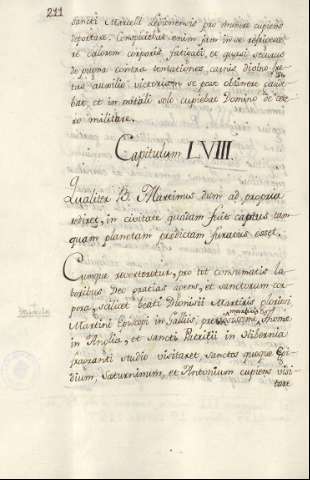 211
sancti Marcelli Legionensis pro munere cupiens
deportare. Conspiciebat enim jam in se refrigera-
re calorem corporis, fatigati, et quasi securus
de pugna contra temtationes carnis divino fre-
tus auxilio victoriam se posse obtinere cande
bat, et in natali solo cupiebat Domino de ce-
ro militare.
Capitulum LVIII.
Qualiter B. Martinus dum ad propria
rediret, in civitate quadam fuit captus tam
quam planetam predictam furatus esset.
Cumque reverteretur, pro tot consumatis la-
boribus Deo gratias agens, et sanctorum cor
pora, scilicet beati Dionisii Martiris gloriosi
Martini Episcopi in Galliis, Thome
in Anglia, et sancti Patritii in Hibernia
studio visitaret, sanctos quoque Egi-
dium, Saturninum, et Antonium cupiens visi-
tare